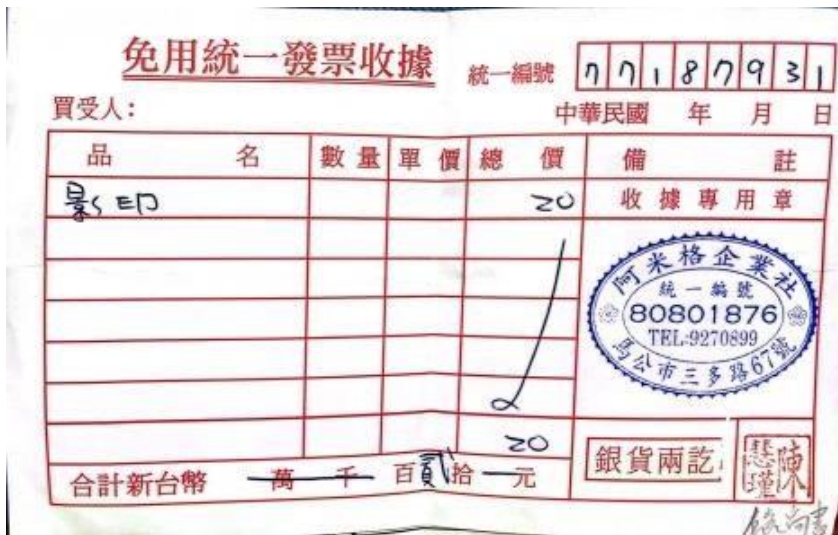 免用統一發票收據
統一編號 77187931
買受人：
中華民國 年 月 日
品名 數量 單價 總價 備註
影印 20 收據專用章
阿米格企業社
統一編號
80801876
TEL:9270899
馬公市三多路67號
20
銀貨兩訖
陳慧瑾
合計新台幣 萬 千 百 貳拾 元